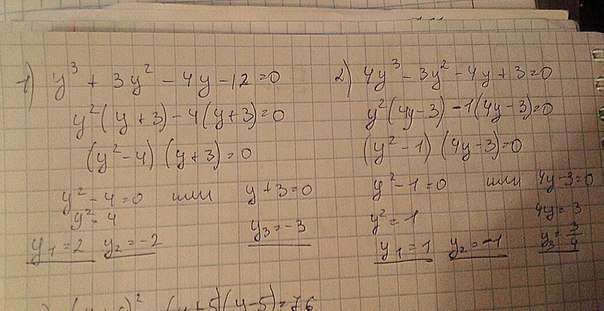 1) y³ + 3y² - 4y - 12 = 0
y²(y + 3) - 4(y + 3) = 0
(y² - 4) (y + 3) = 0
y² - 4 = 0 или y + 3 = 0
y² = 4
y₁ = 2 y₂ = -2 y₃ = -3
2) 4y³ - 3y² - 4y + 3 = 0
y²(4y - 3) - 1(4y - 3) = 0
(y² - 1) (4y - 3) = 0
y² - 1 = 0 или 4y - 3 = 0
y² = 1 4y = 3
y₁ = 1 y₂ = -1 y₃ = 3/4
(y+5)(y-5) = 76